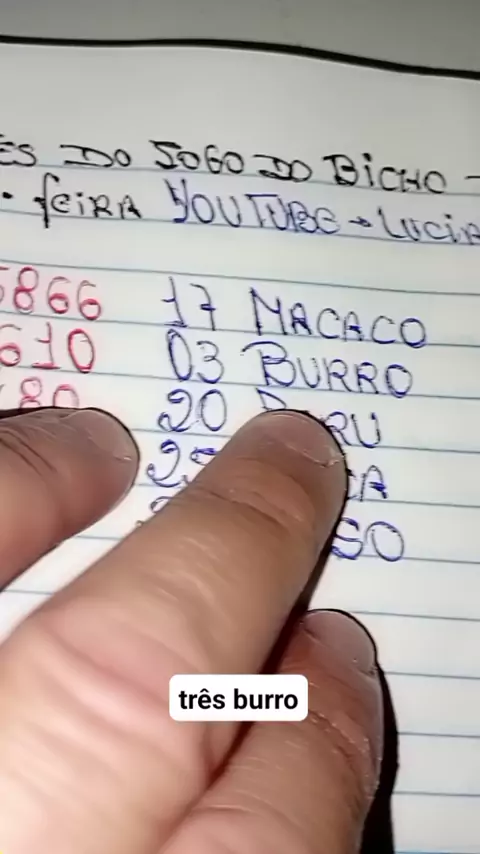 ES DO JOGO DO BICHO -
- feiRA YOUTUBE → LUCIA
5866 17 MACACO
610 03 BURRO
80 20 RU
SO
três burro